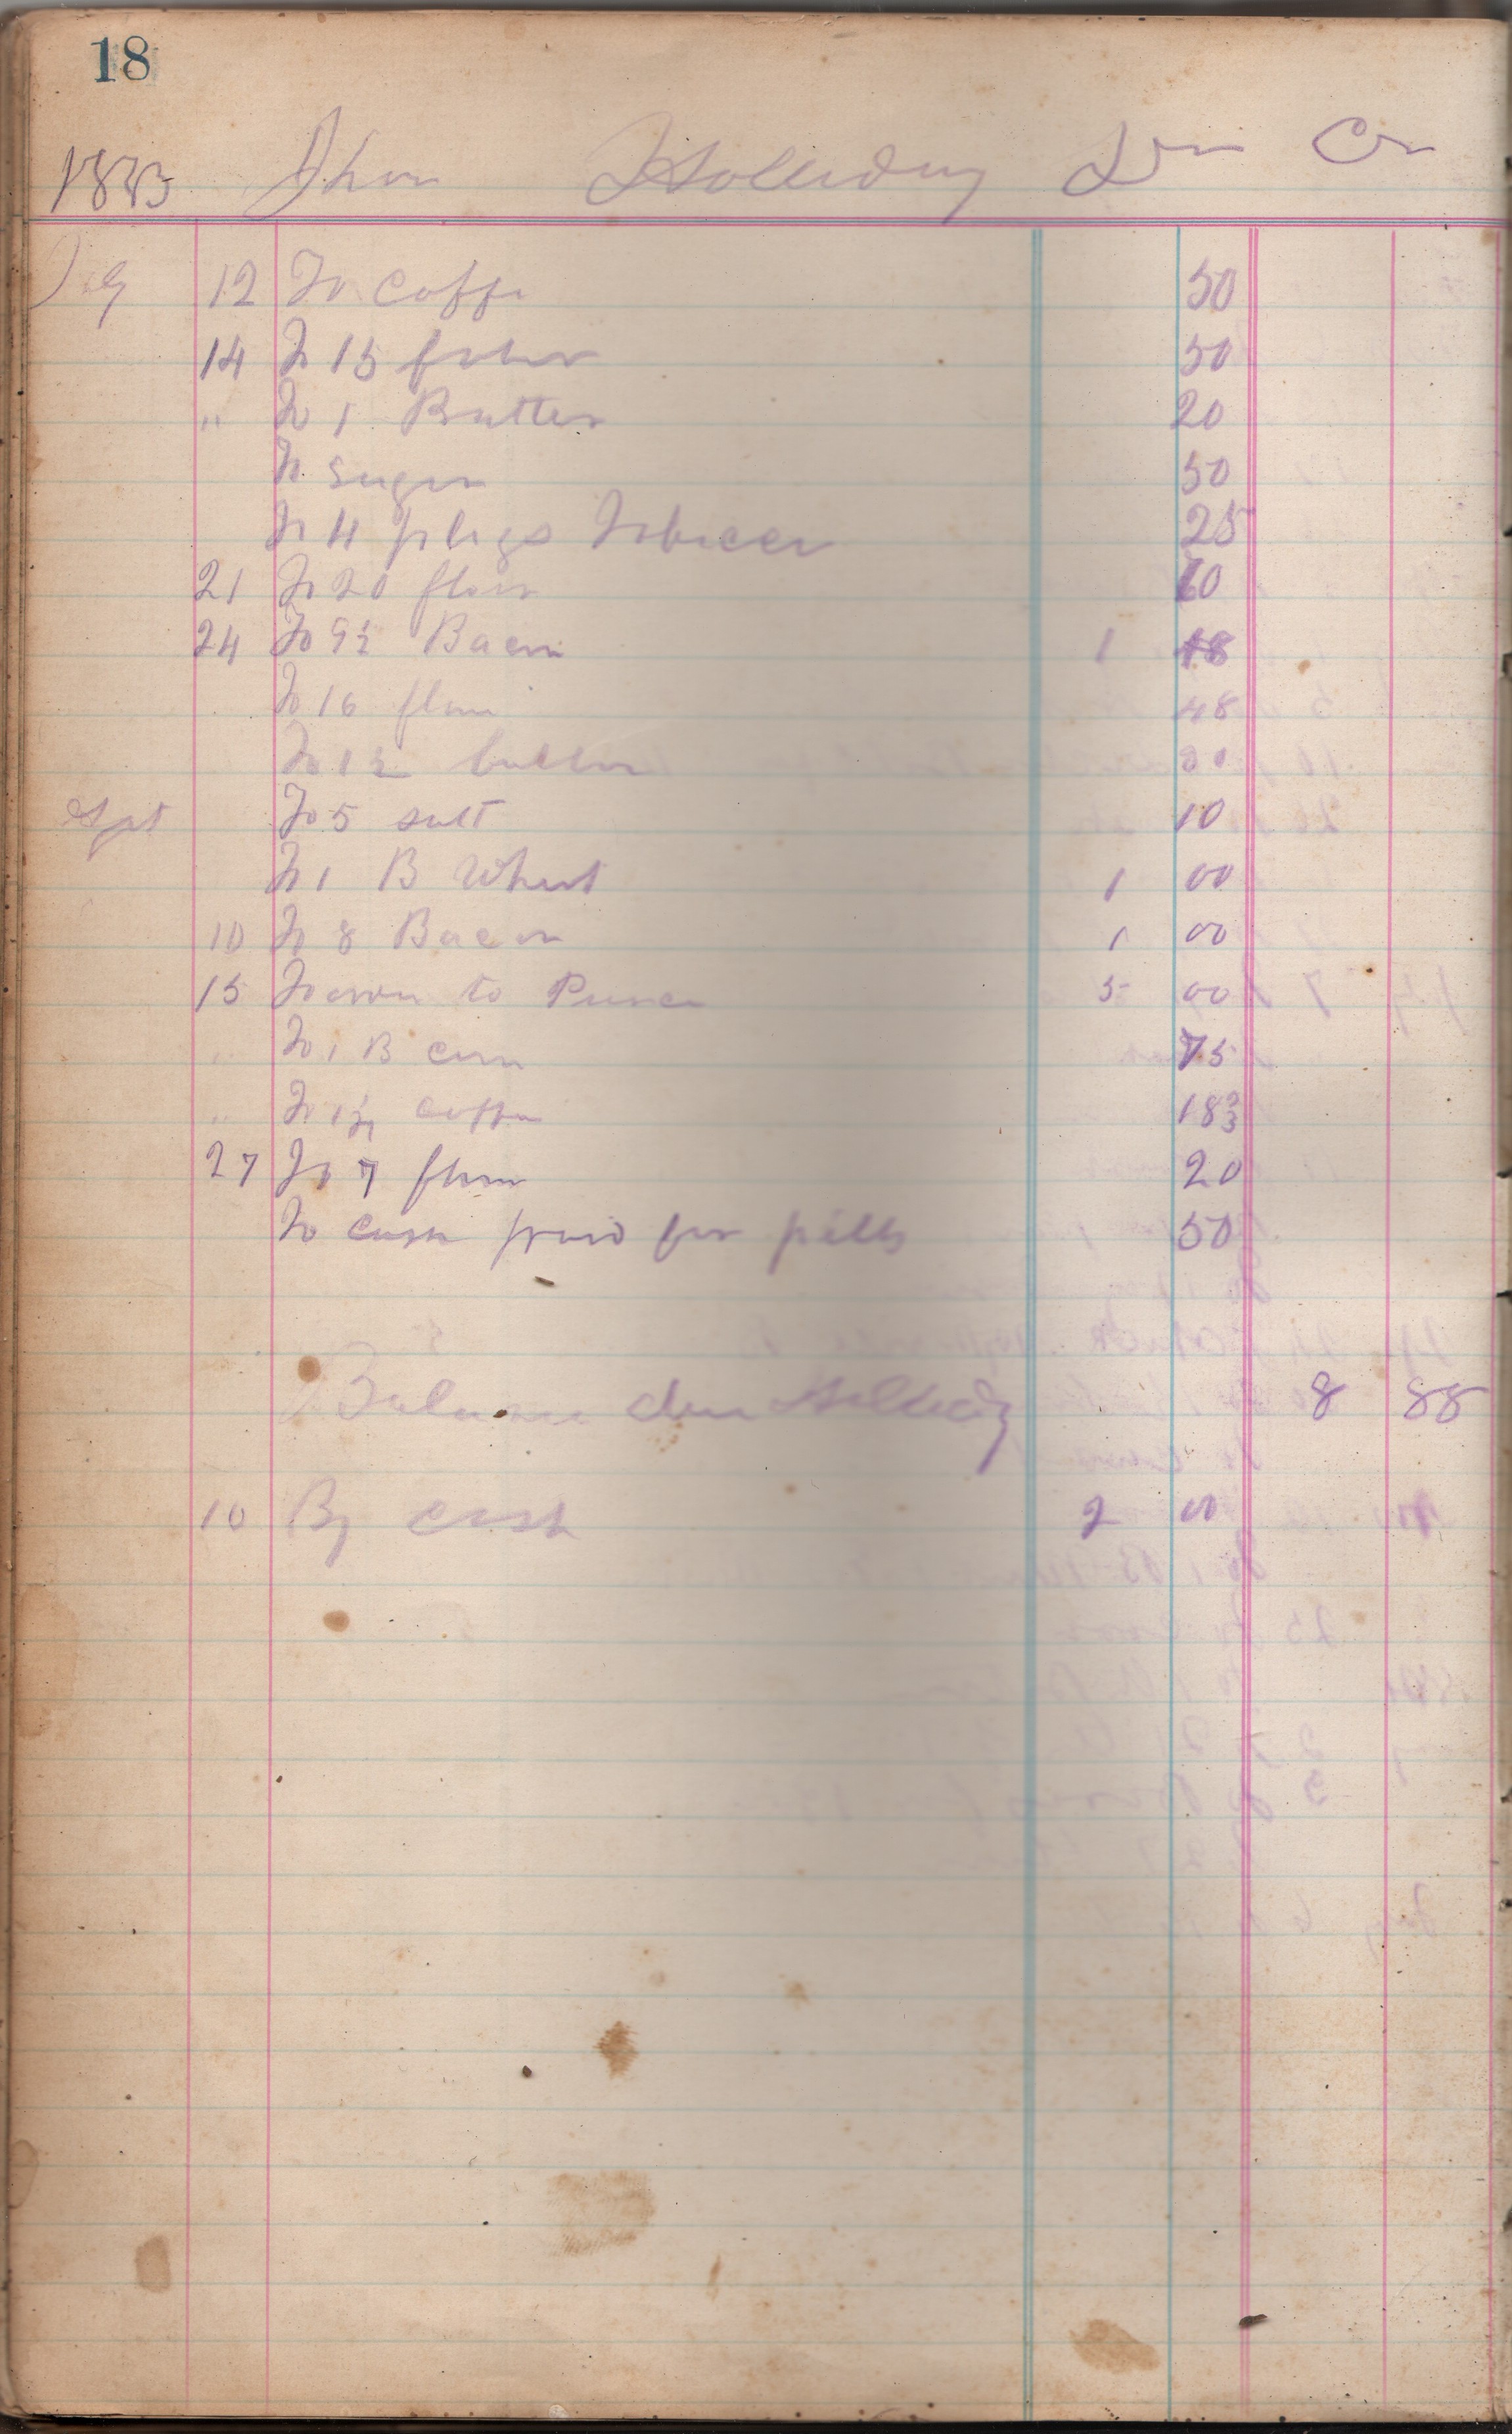 18
1883 Jhon Holliday Dr Cr
12 To Coffe 50
14 To 15 50
" To 1 Butter 20
To Sugar 50
To 4 plugs Tobacco 25
21 To 20 flour 60
24 To 9½ Bacon 1 18
To 16 flour 48
To 1½ butter
Spt To 5 salt 10
To 1 B Wheat 1 00
10 To 8 Bacon 1 00
15 to 5 00
" To 1 B corn 75
" To coffe 18
27 To 7 flour 20
To cash paid for pills 50
Balance due Holliday 8 88
10 By cash 2 00